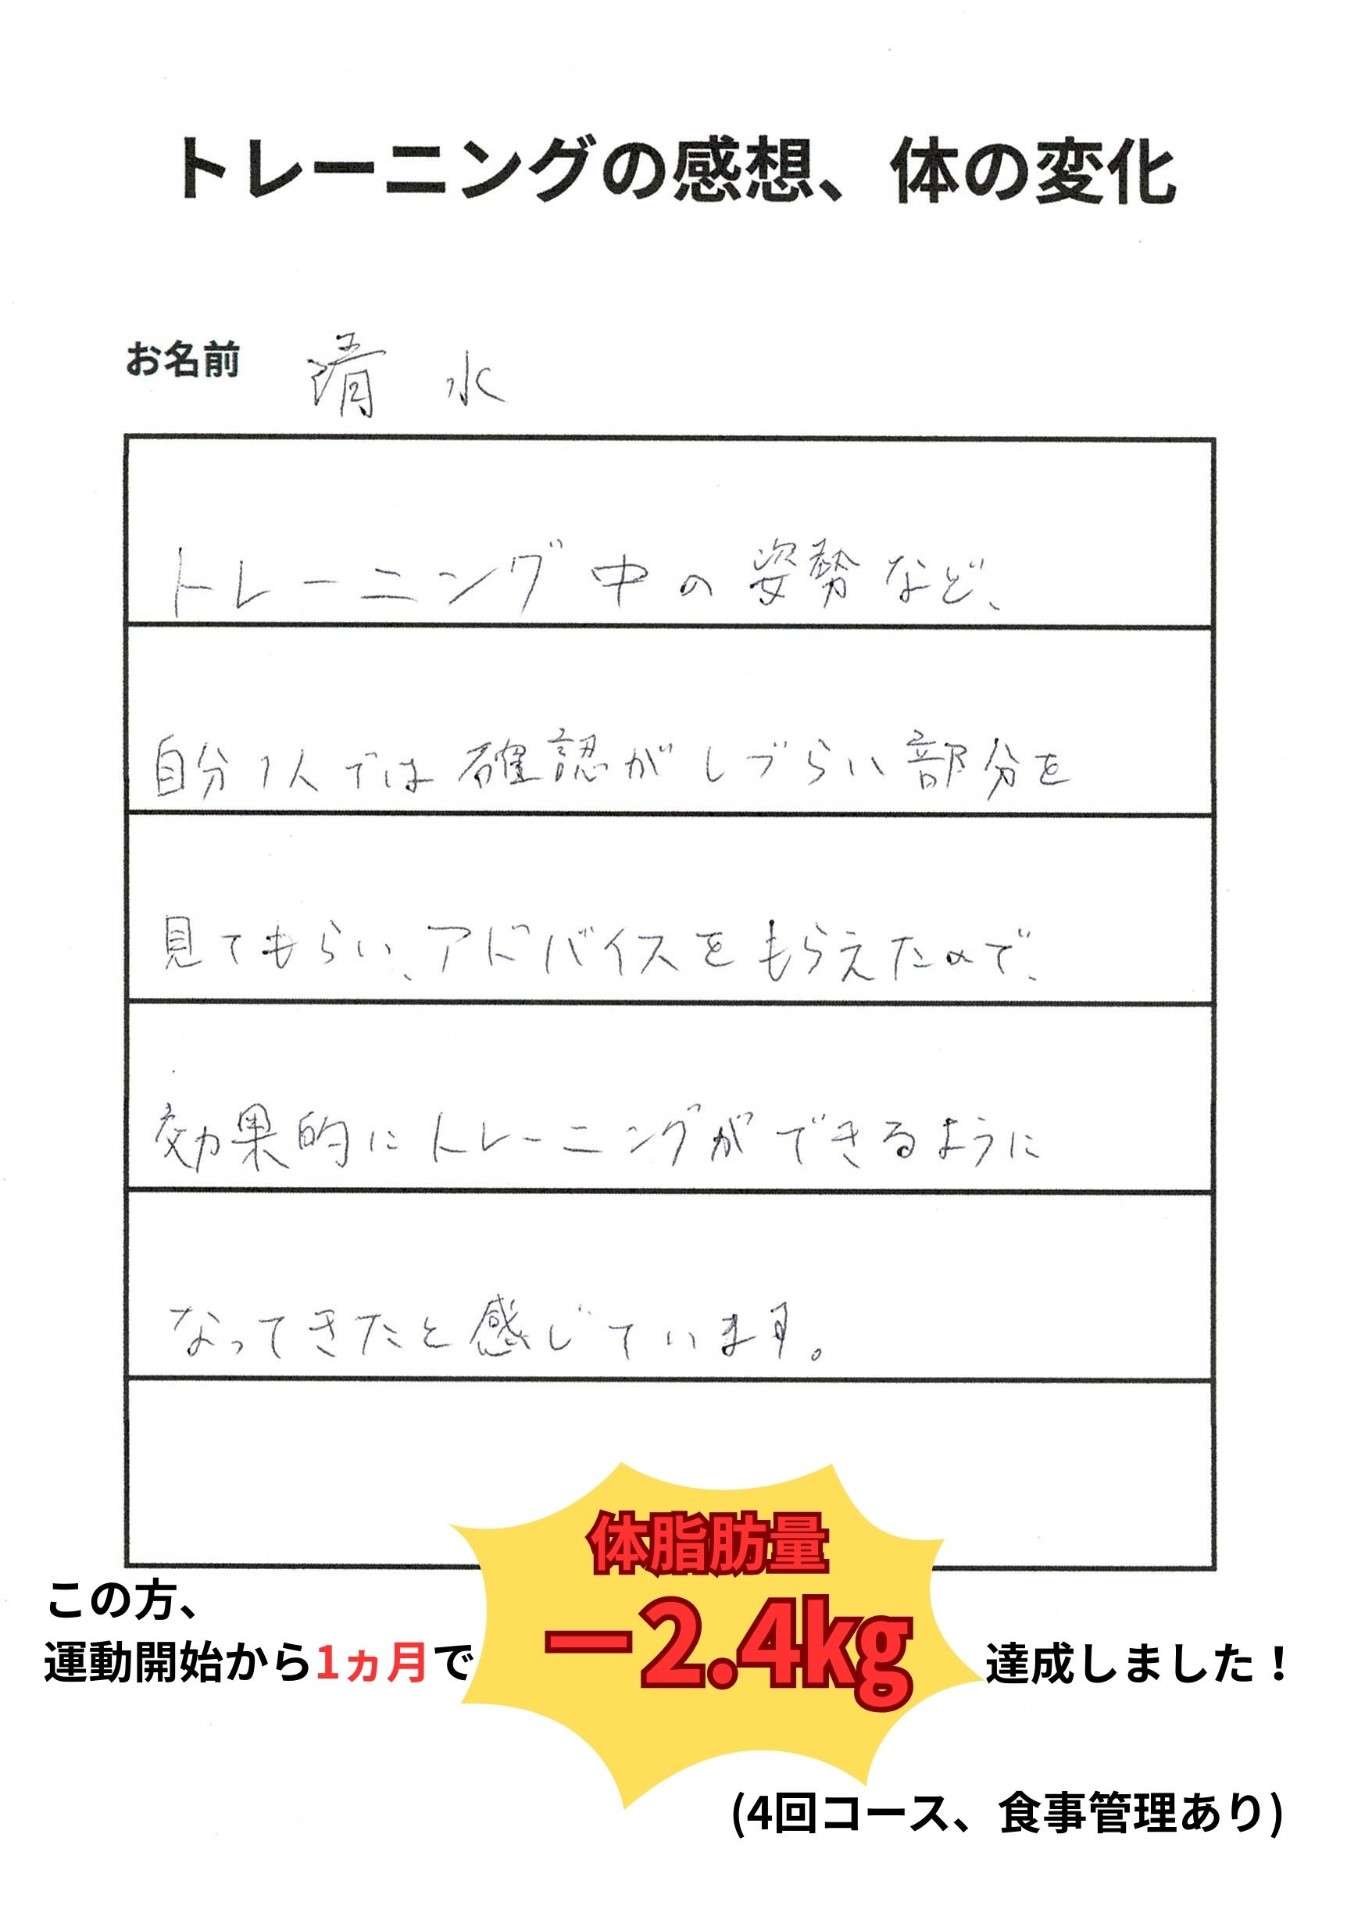 トレーニングの感想、体の変化
お名前 清水
トレーニング中の姿勢など、
自分1人では確認がしづらい部分を
見てもらい、アドバイスをもらえたので、
効果的にトレーニングができるように
なってきたと感じています。
体脂肪量
この方、
運動開始から1ヵ月で －2.4kg 達成しました！
(4回コース、食事管理あり)